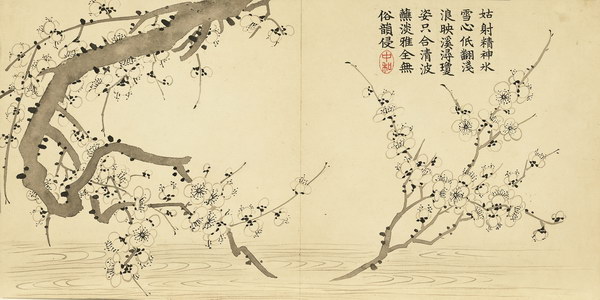 姑射精神氷
雪心低翻淺
浪映溪潯瓊
姿只合清波
蘸淡雅全無
俗韻侵